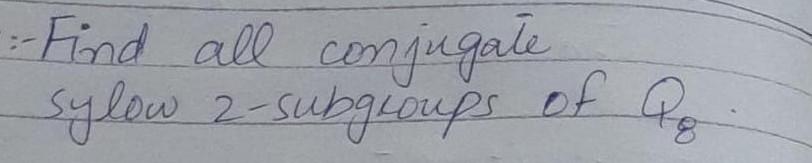 :- Find all conjugate
sylow 2-subgroups of Q₈.